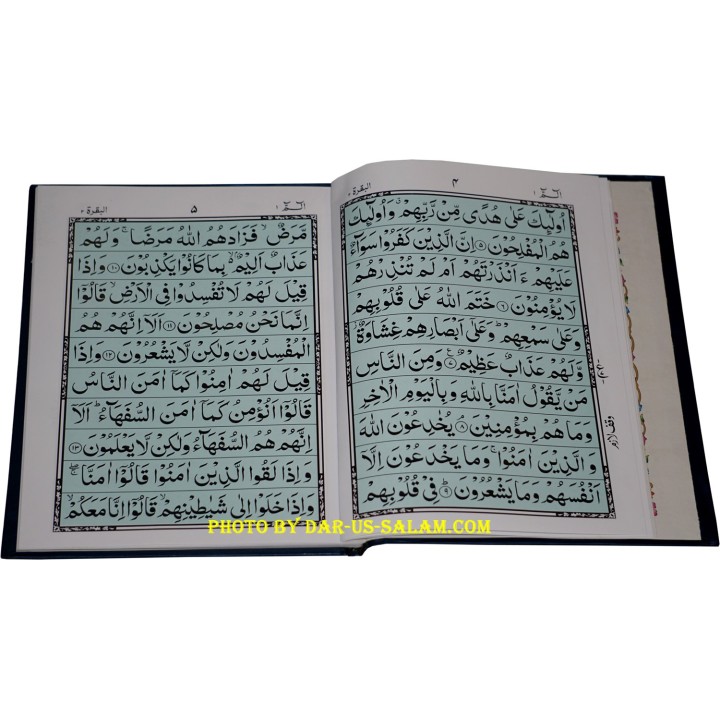 الٓمّٓ ۱
۴
البقرة ۲
اُولٰٓئِكَ عَلٰى هُدًى مِّنْ رَّبِّهِمْ ۙ وَاُولٰٓئِكَ
هُمُ الْمُفْلِحُوْنَ ۝۵ اِنَّ الَّذِيْنَ كَفَرُوْا سَوَآءٌ
عَلَيْهِمْ ءَاَنْذَرْتَهُمْ اَمْ لَمْ تُنْذِرْهُمْ
لَا يُؤْمِنُوْنَ ۝۶ خَتَمَ اللّٰهُ عَلٰى قُلُوْبِهِمْ
وَعَلٰى سَمْعِهِمْ ؕ وَعَلٰٓى اَبْصَارِهِمْ غِشَاوَةٌ ؗ
وَّلَهُمْ عَذَابٌ عَظِيْمٌ ۝۷ وَمِنَ النَّاسِ
مَنْ يَّقُوْلُ اٰمَنَّا بِاللّٰهِ وَبِالْيَوْمِ الْاٰخِرِ
وَمَا هُمْ بِمُؤْمِنِيْنَ ۝۸ يُخٰدِعُوْنَ اللّٰهَ
وَالَّذِيْنَ اٰمَنُوْا ۚ وَمَا يَخْدَعُوْنَ اِلَّاۤ
اَنْفُسَهُمْ وَمَا يَشْعُرُوْنَ ۝۹ فِيْ قُلُوْبِهِمْ
وقف لازم
الٓمّٓ ۱
۵
البقرة ۲
مَّرَضٌ ۙ فَزَادَهُمُ اللّٰهُ مَرَضًا ۚ وَلَهُمْ
عَذَابٌ اَلِيْمٌۢ ۙ بِمَا كَانُوْا يَكْذِبُوْنَ ۝۱۰ وَاِذَا
قِيْلَ لَهُمْ لَا تُفْسِدُوْا فِي الْاَرْضِ ۙ قَالُوْۤا
اِنَّمَا نَحْنُ مُصْلِحُوْنَ ۝۱۱ اَلَاۤ اِنَّهُمْ هُمُ
الْمُفْسِدُوْنَ وَلٰكِنْ لَّا يَشْعُرُوْنَ ۝۱۲ وَاِذَا
قِيْلَ لَهُمْ اٰمِنُوْا كَمَاۤ اٰمَنَ النَّاسُ
قَالُوْۤا اَنُؤْمِنُ كَمَاۤ اٰمَنَ السُّفَهَآءُ ؕ اَلَاۤ
اِنَّهُمْ هُمُ السُّفَهَآءُ وَلٰكِنْ لَّا يَعْلَمُوْنَ ۝۱۳
وَاِذَا لَقُوا الَّذِيْنَ اٰمَنُوْا قَالُوْۤا اٰمَنَّا ۚ
وَاِذَا خَلَوْا اِلٰى شَيٰطِيْنِهِمْ ۙ قَالُوْۤا اِنَّا مَعَكُمْ ۙ
PHOTO BY DAR-US-SALAM.COM